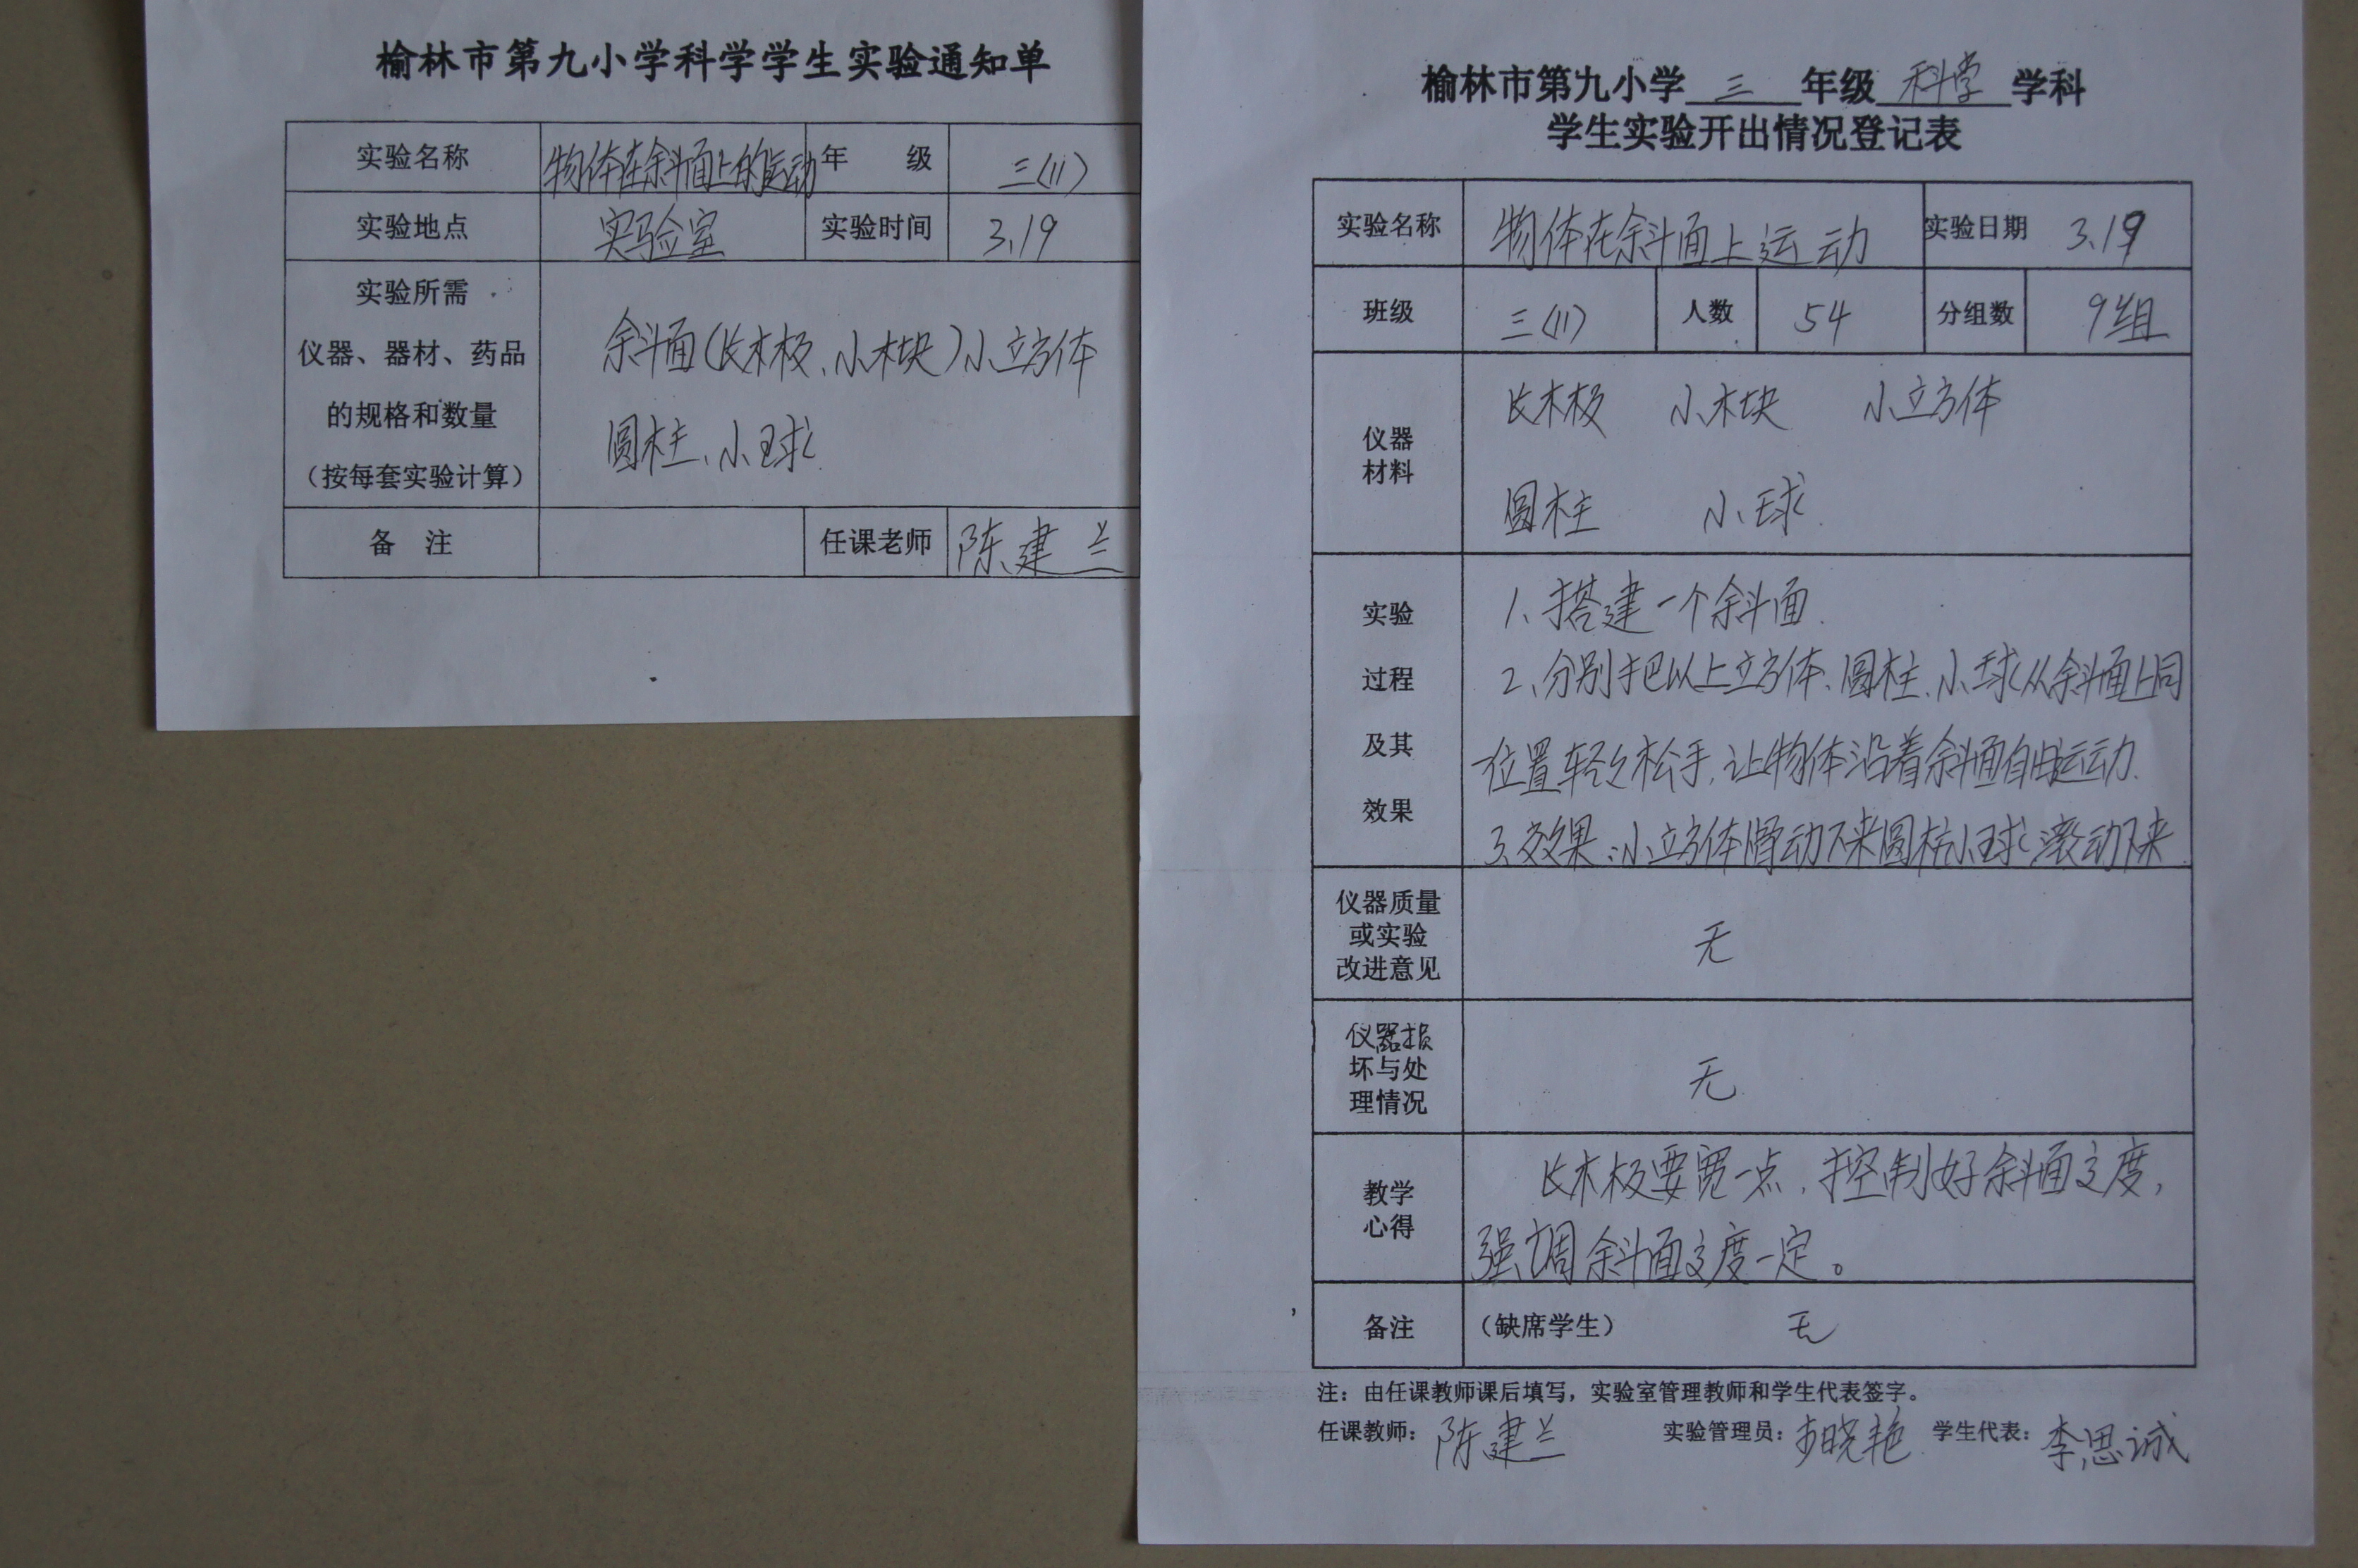 榆林市第九小学科学学生实验通知单
实验名称 物体在斜面上的运动 年 级 三(11)
实验地点 实验室 实验时间 3.19
实验所需
仪器、器材、药品
的规格和数量
（按每套实验计算）
斜面(长木板、小木块)小立方体
圆柱、小球
备 注 任课老师 陈建兰
榆林市第九小学 三 年级 科学 学科
学生实验开出情况登记表
实验名称 物体在斜面上运动 实验日期 3.19
班级 三(11) 人数 54 分组数 9组
仪器
材料
长木板 小木块 小立方体
圆柱 小球
实验
过程
及其
效果
1、搭建一个斜面.
2、分别把以上立方体、圆柱、小球从斜面上同
位置轻轻松手,让物体沿着斜面自由运动.
3、效果:小立方体滑动下来圆柱小球滚动下来
仪器质量
或实验
改进意见
无
仪器损
坏与处
理情况
无
教学
心得
长木板要宽一点,控制好斜面支度,
强调斜面支度一定。
备注 （缺席学生） 无
注：由任课教师课后填写，实验室管理教师和学生代表签字。
任课教师：陈建兰 实验管理员：步晓艳 学生代表：李思诚